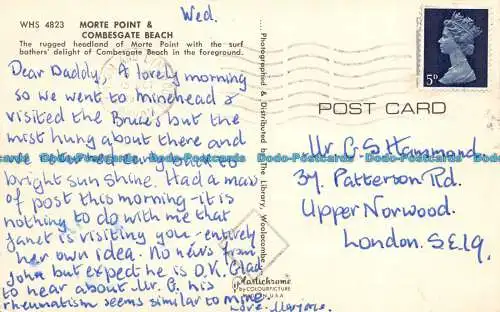 Wed.
WHS 4823 MORTE POINT &
COMBESGATE BEACH
The rugged headland of Morte Point with the surf
bathers' delight of Combesgate Beach in the foreground.
Dear Daddy, A lovely morning
so we went to Minehead &
visited the Bruce's but the
mist hung about there and
we returned early back to
bright sun shine. Had a mass
of post this morning - it is
nothing to do with me that
Janet is visiting you - entirely
her own idea. No news from
John but expect he is O.K. Glad
to hear about Mr. G. his
rheumatism seems similar to mine.
Love.
Photographed & Distributed by The Library, Woolacombe.
Plastichrome
by COLOURPICTURE
U.S.A.
5D
POST CARD
Mr. G S Hammond
37. Patterson Rd.
Upper Norwood.
London. S.E.19.
Dodo-Postcards Dodo-Postcards Dodo-Postcards